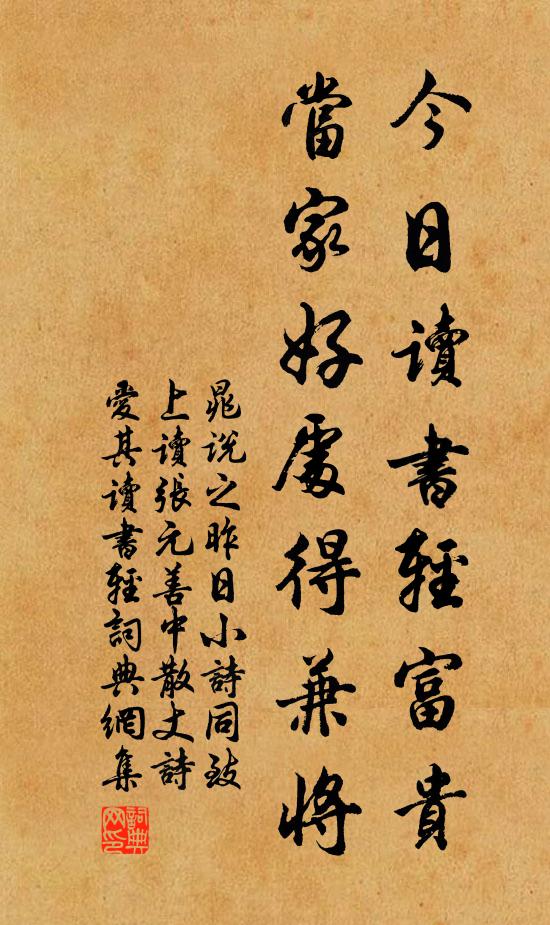 今日讀書輕富貴
當家好處得兼將
晁說之昨日小詩同致
上讀張元善中散丈詩
愛其讀書輕詞典網集
詞典网印